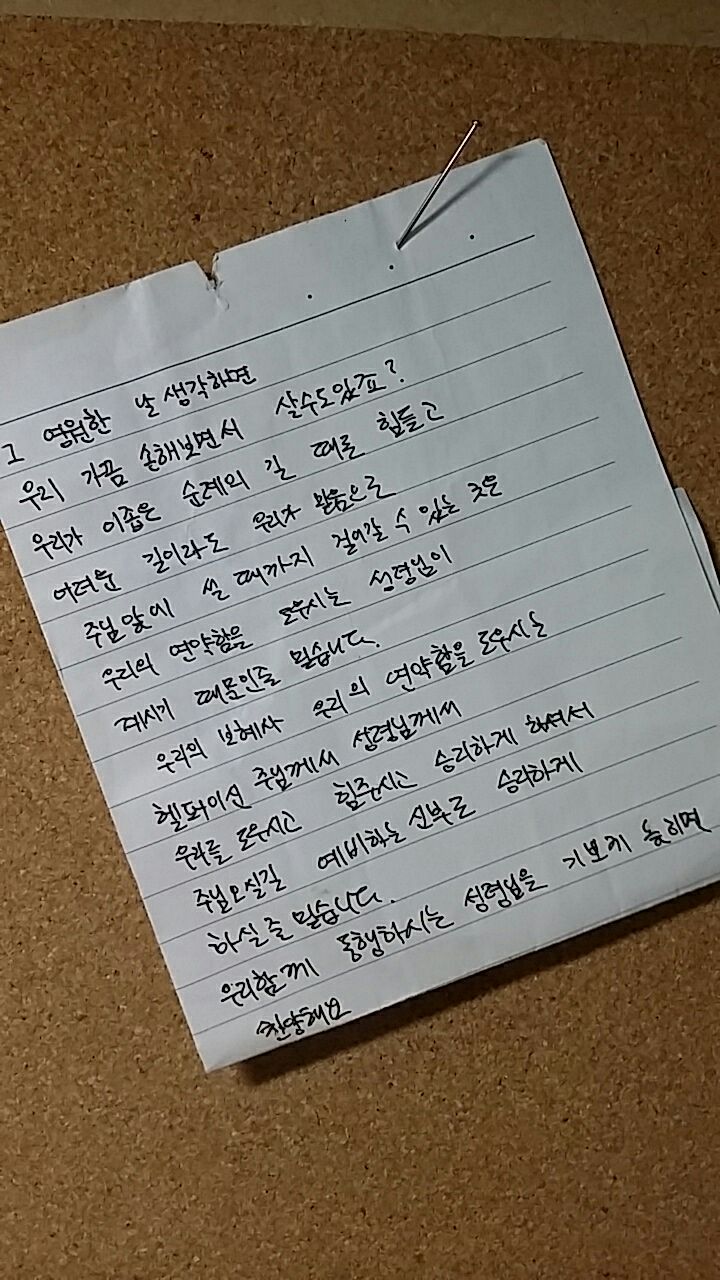 그 영원한 날 생각하면
우리 가끔 손해보면서 살수도있죠?
우리가 이좁은 순례의 길 때론 힘들고
어려운 길이라도 우리가 믿음으로
주님앞에 설 때까지 걸어갈 수 있는 것은
우리의 연약함을 도우시는 성령님이
계시기 때문인줄 믿습니다.
우리의 보혜사 우리의 연약함을 도우시는
헬퍼이신 주님께서 성령님께서
우리를 도우시고 힘주시고 승리하게 하셔서
주님오실길 예비하는 신부로 승리하게
하실 줄 믿습니다.
우리함께 동행하시는 성령님을 기쁘게 높히며
찬양해요